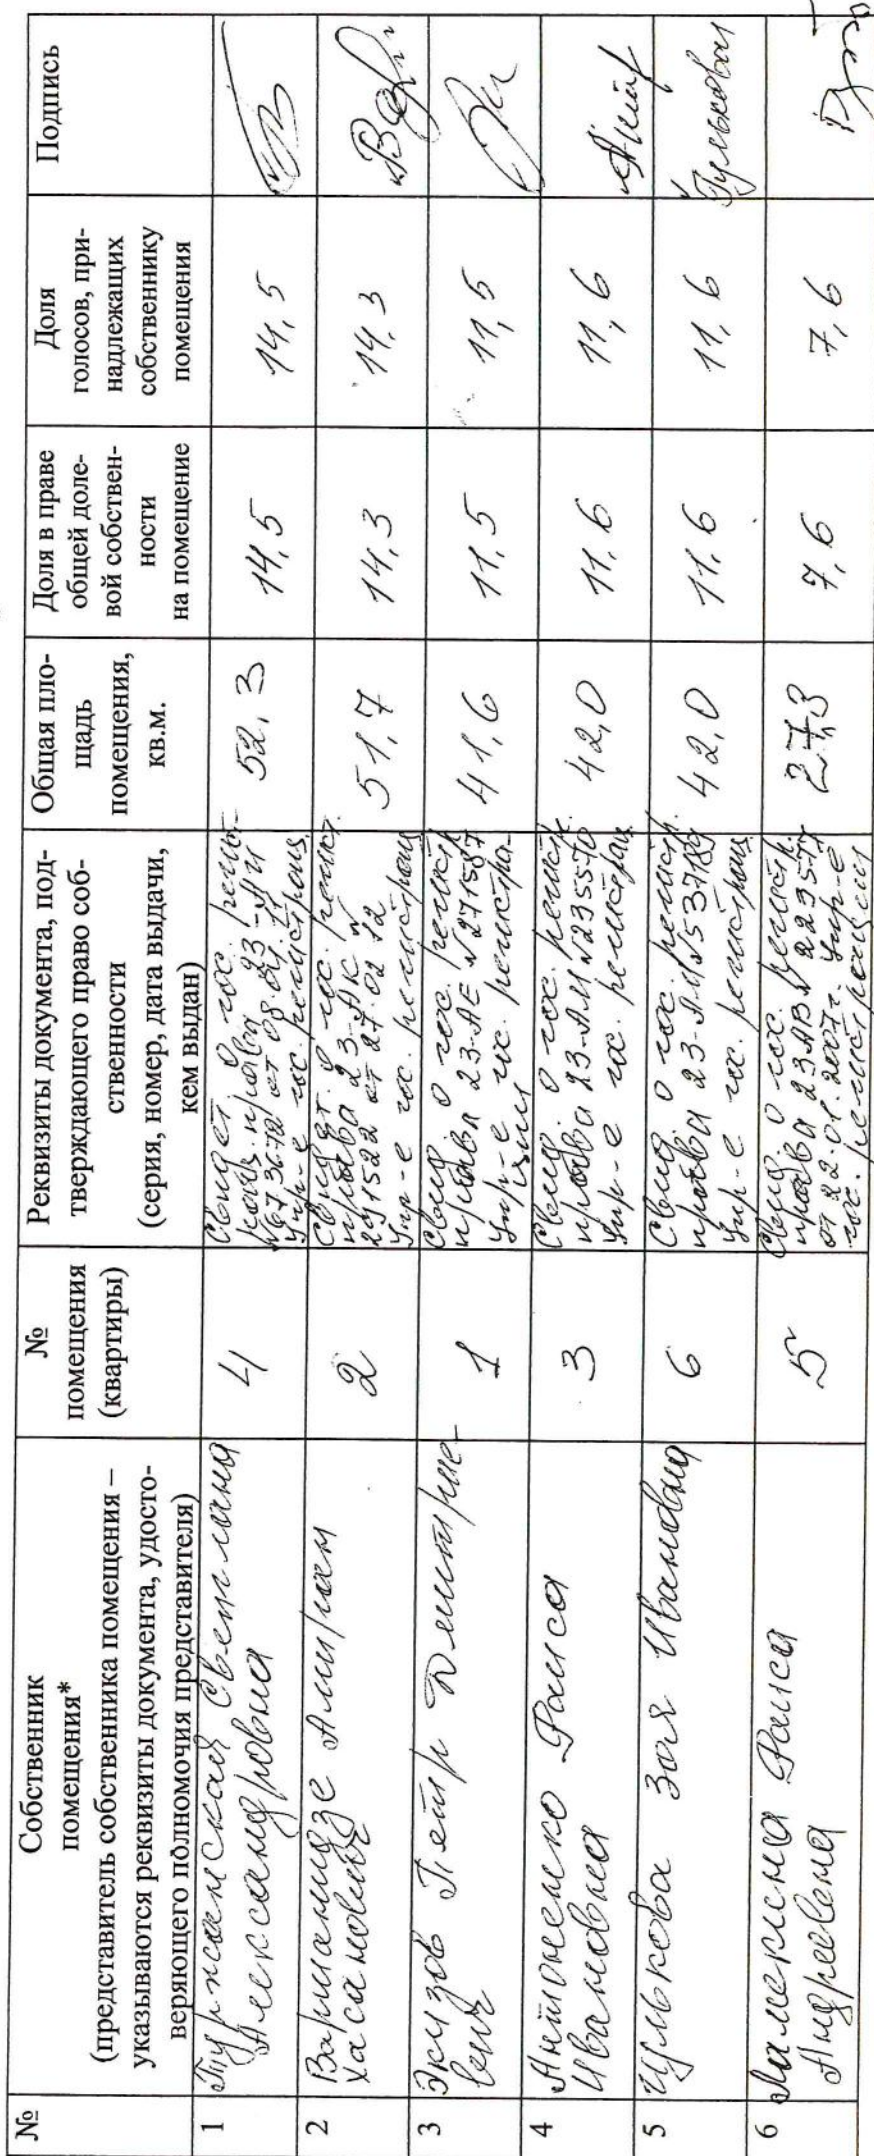 №
Собственник
помещения*
(представитель собственника помещения –
указываются реквизиты документа, удосто-
веряющего полномочия представителя)
№
помещения
(квартиры)
Реквизиты документа, под-
тверждающего право соб-
ственности
(серия, номер, дата выдачи,
кем выдан)
Общая пло-
щадь
помещения,
кв.м.
Доля в праве
общей доле-
вой собствен-
ности
на помещение
Доля
голосов, при-
надлежащих
собственнику
помещения
Подпись
1
Туржанская Светлана
Александровна
4
Свидет. о гос. регист-
рац. права 23-АИ
№673672 от 08.04.11
Упр-е гос. регистрац
52,3
14,5
14,5
2
Варшанидзе Амиран
Хасанович
2
Свидет. о гос. регист.
права 23-АК №
291522 от 27.02.12
Упр-е гос. регистрац
51,7
14,3
14,3
3
Экизов Петр Дмитрие-
вич
1
Свид. о гос. регистр
права 23-АЕ №271587
Упр-е гос. регистра-
ции
41,6
11,5
11,5
4
Антоненко Раиса
Ивановна
3
Свид. о гос. регистр.
права 23-АИ №235570
Упр-е гос. регистрац
42,0
11,6
11,6
5
Цулькова Зоя Ивановна
6
Свид. о гос. регистр.
права 23-АИ №537189
Упр-е гос. регистрац
42,0
11,6
11,6
6
Ламекина Раиса
Андреевна
5
Свид. о гос. регистр.
права 23АВ № 223577
от 22.01.2007г. Упр-е
гос. регистрации
27,3
7,6
7,6